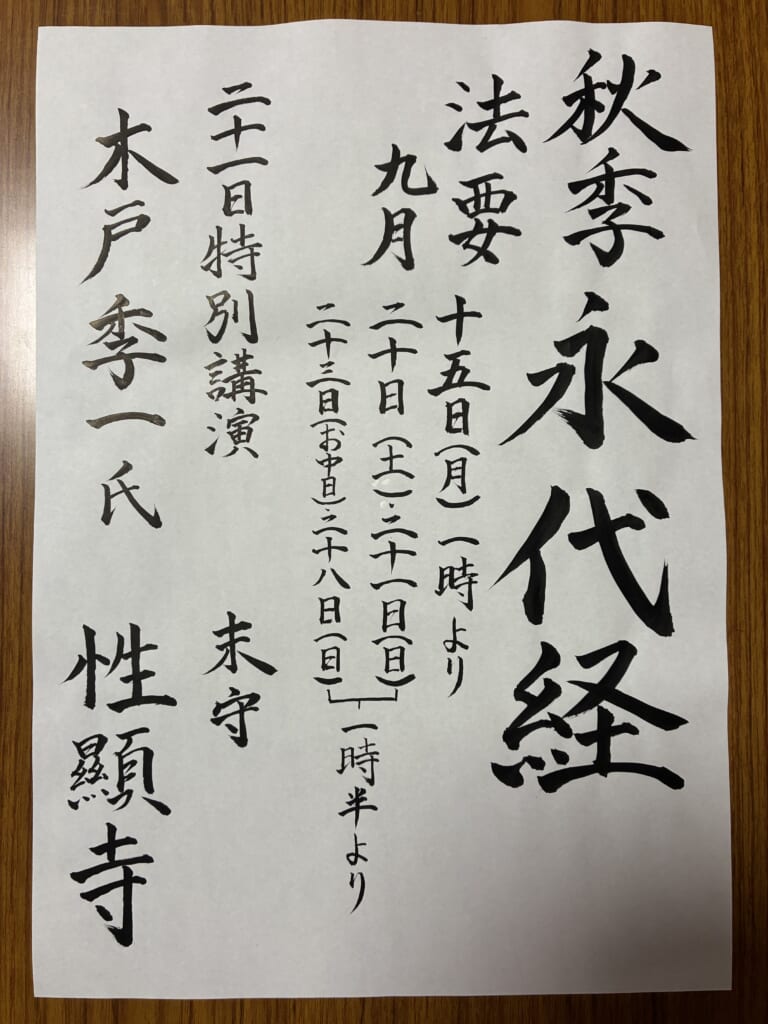 秋季永代経
法要
九月
十五日(月)一時より
二十日(土)・二十一日(日)
二十三日(お中日)・二十八日(日)
一時半より
二十一日特別講演
木戸季一氏
末守
性顯寺